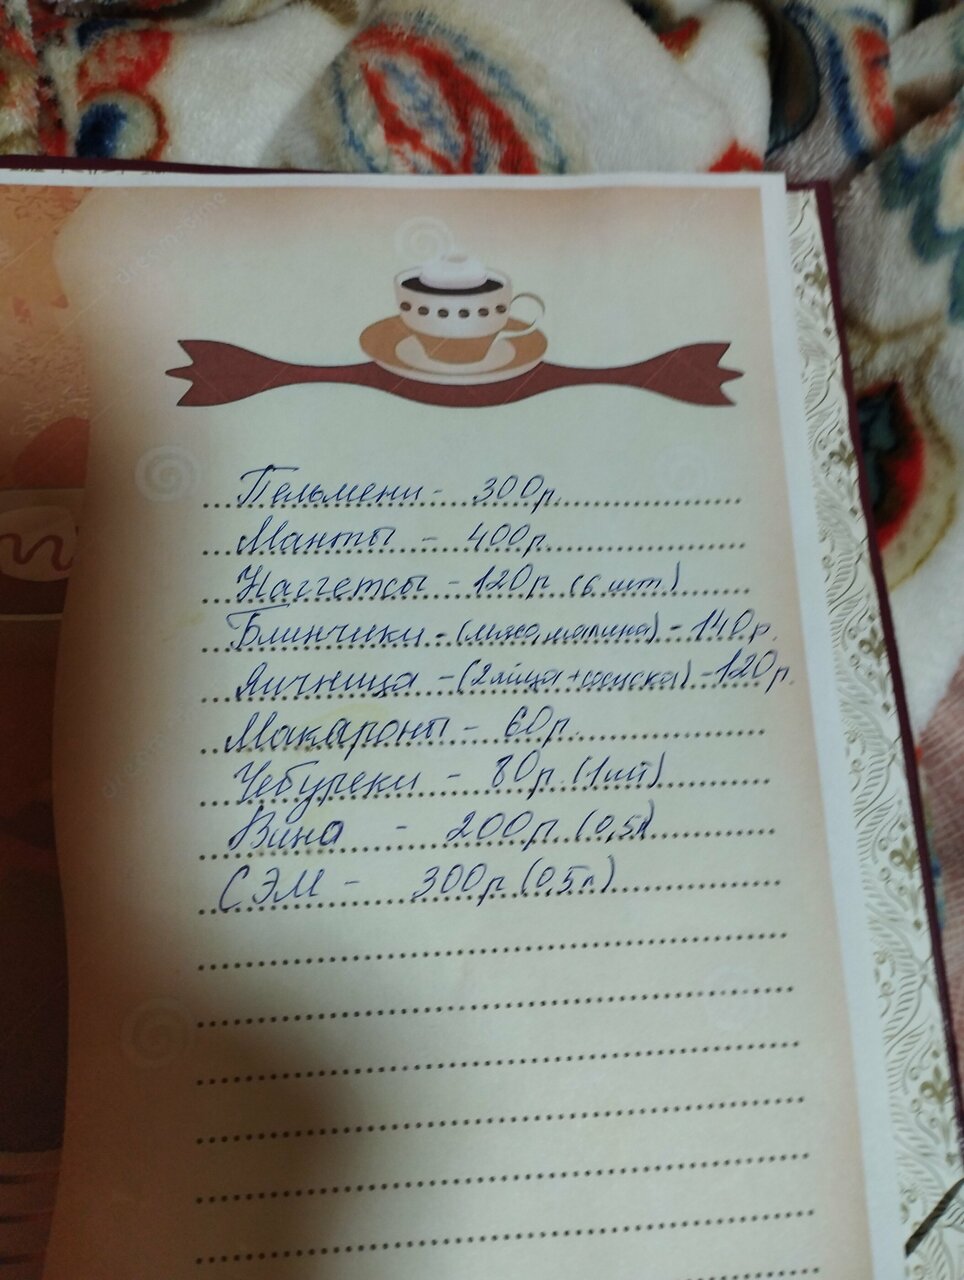 Пельмени - 300р.
Манты - 400р
Наггетсы - 120р (6 шт)
Блинчики - (мясо, малина) - 140р.
Яичница - (2 яйца + сосиска) - 120р.
Макароны - 60р.
Чебуреки - 80р. (1шт)
Вино - 200р (0,5л)
СЭМ - 300р (0,5л)